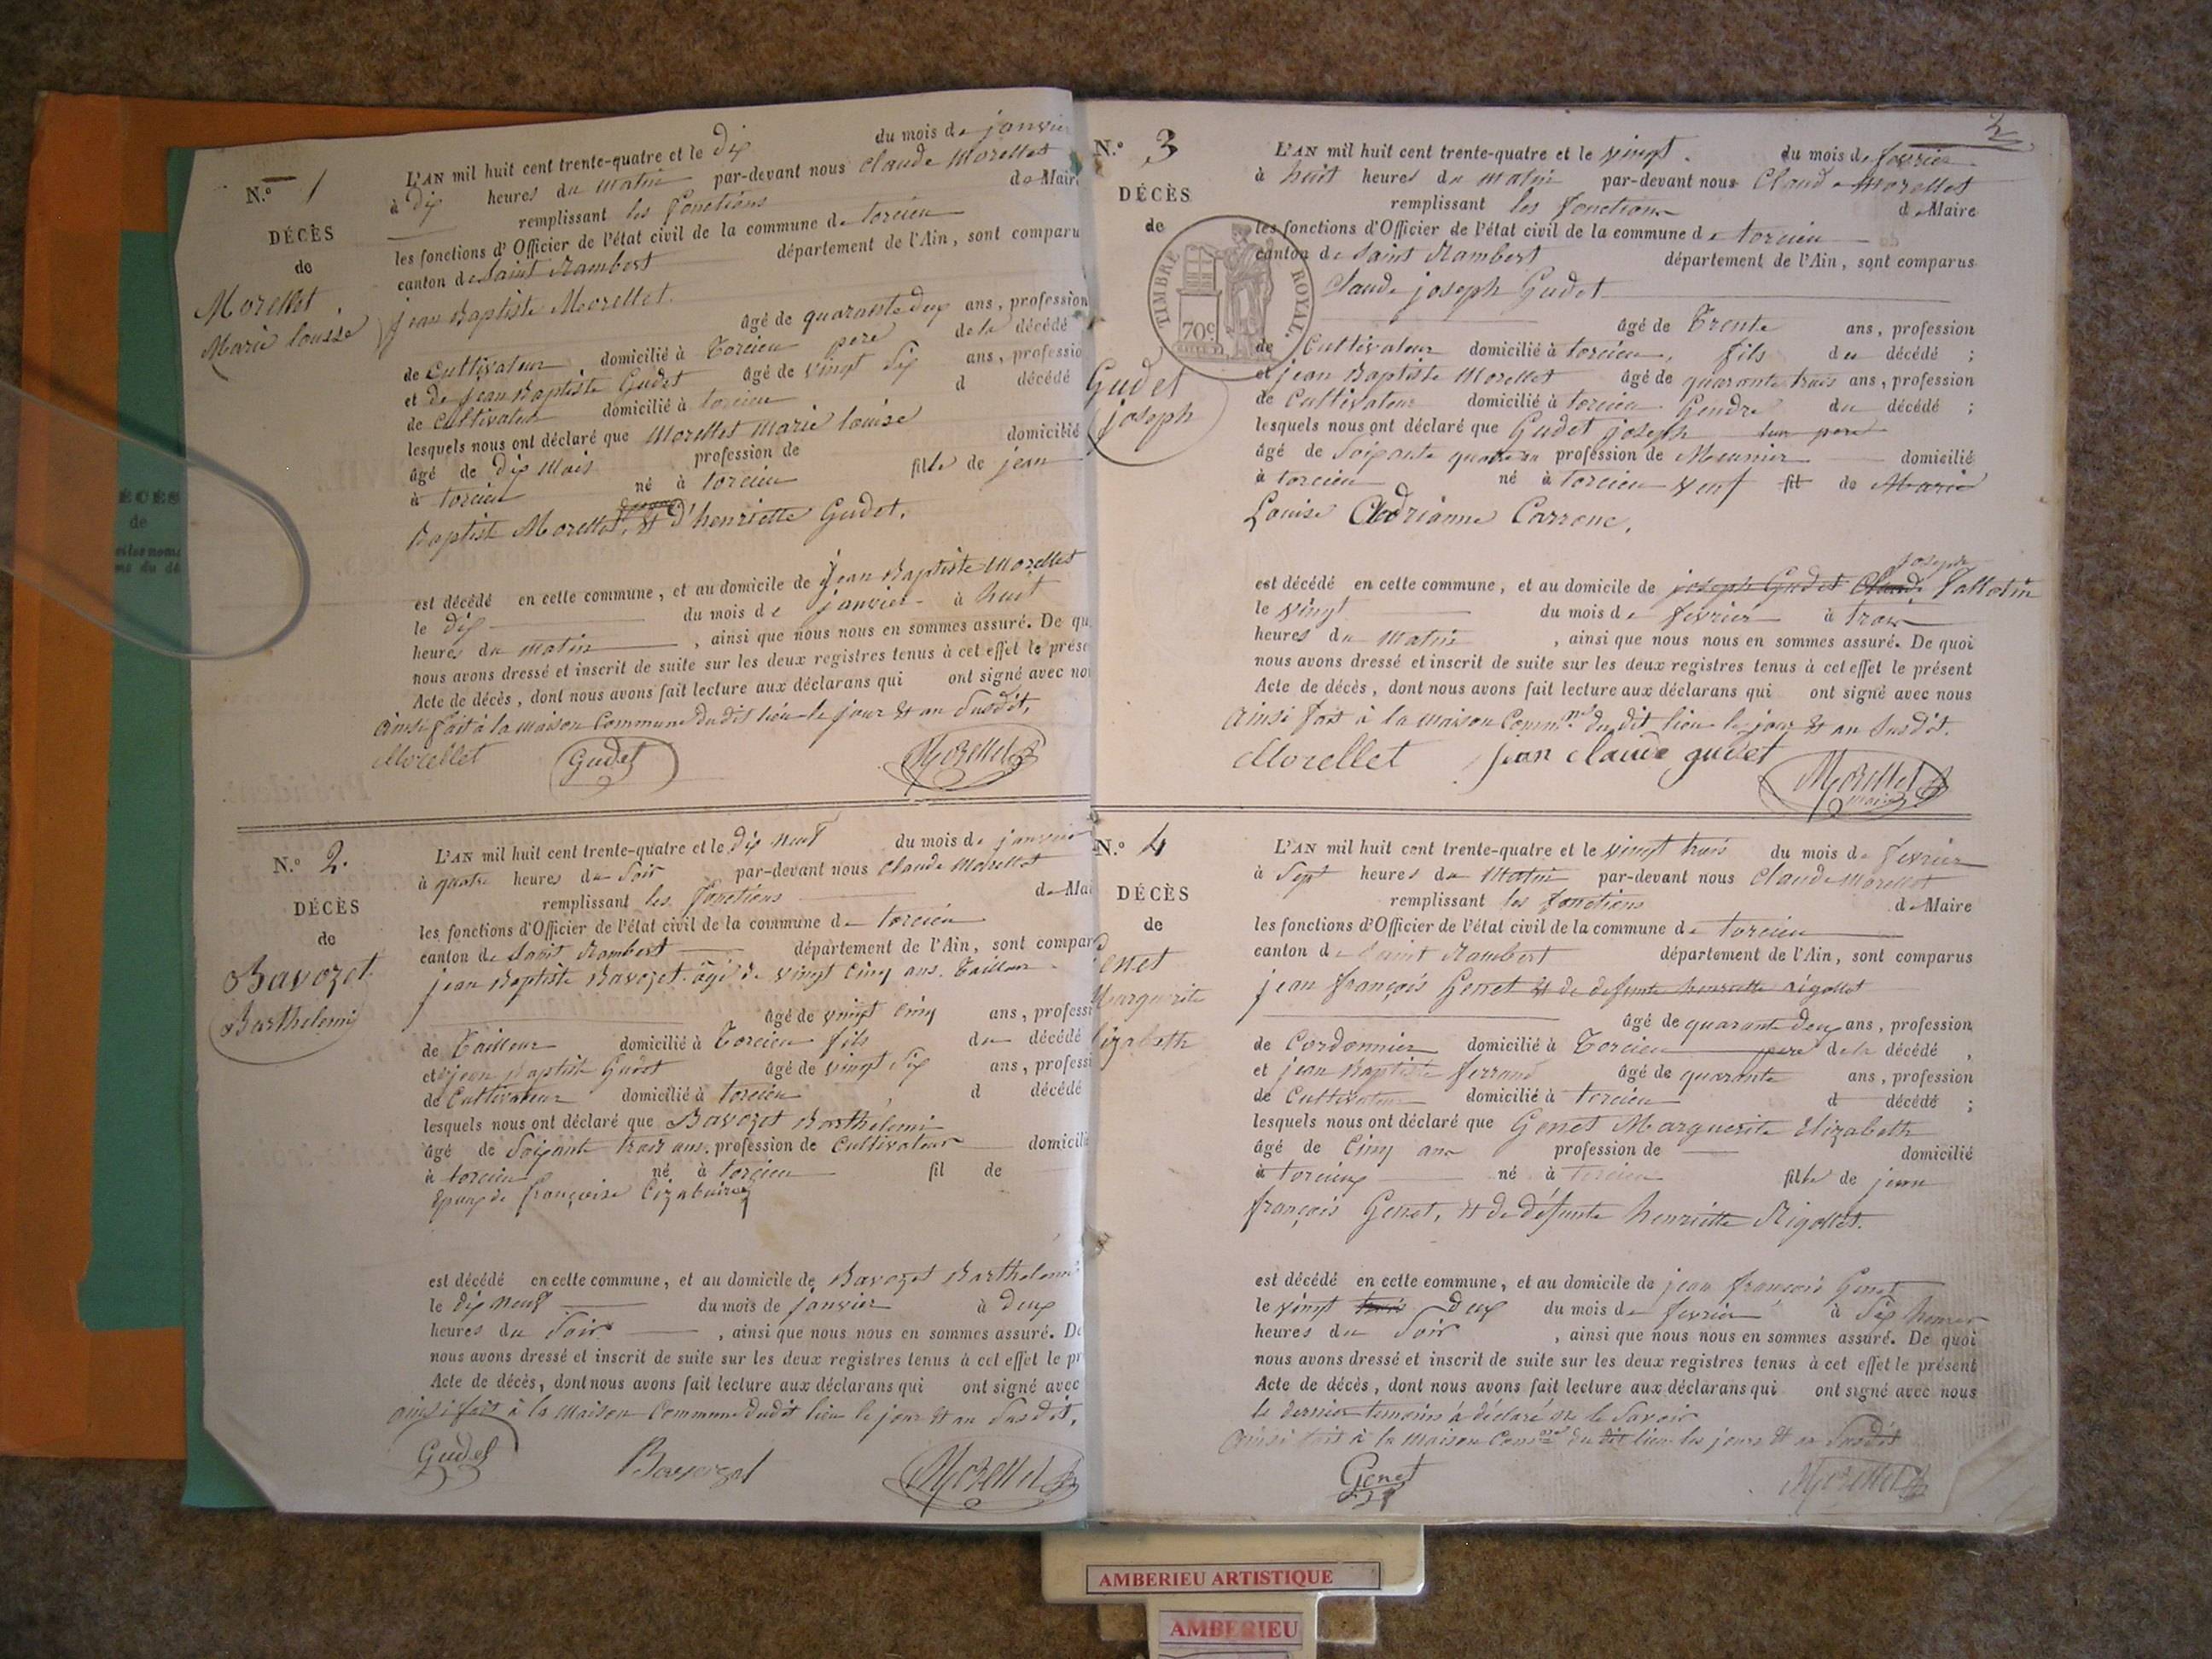 N.º 1
DÉCÈS
de
Morellet
Marie louise
L'AN mil huit cent trente-quatre et le dix du mois de janvier
à dix heures du matin par-devant nous Claude Morellet
remplissant les fonctions de Maire
les fonctions d'Officier de l'état civil de la commune de torcieu
canton de Saint Rambert département de l'Ain, sont comparu
jean Baptiste Morellet
âgé de quarante deux ans, profession
de Cultivateur domicilié à Torcieu pere de la décédé
et de jean Baptiste Gudet âgé de vingt Six ans, professio
de Cultivateur domicilié à torcieu d décédé
lesquels nous ont déclaré que Morellet Marie louise
âgé de dix Mois profession de domicilié
à torcieu né à torcieu fille de jean
Baptiste Morellet, et d'henriette Gudet.
est décédé en cette commune, et au domicile de Jean Baptiste Morellet
le dix du mois de janvier à huit
heures du matin, ainsi que nous nous en sommes assuré. De qu
nous avons dressé et inscrit de suite sur les deux registres tenus à cet effet le prése
Acte de décès, dont nous avons fait lecture aux déclarans qui ont signé avec no
ainsi fait à la maison Commune Dudit lieu le jour et an Susdit.
Morellet Gudet Morellet
N.º 2.
DÉCÈS
de
Bavozet
Barthelemi
L'AN mil huit cent trente-quatre et le dix neuf du mois de janvier
à quatre heures du Soir par-devant nous Claude Morellet
remplissant les fonctions de Mai
les fonctions d'Officier de l'état civil de la commune de torcieu
canton de Saint Rambert département de l'Ain, sont compar
jean Baptiste Bavozet âgé de vingt Cinq ans. Tailleur
âgé de vingt Cinq ans, professi
de Tailleur domicilié à Torcieu fils du décédé
et jean Baptiste Gudet âgé de vingt Six ans, professi
de Cultivateur domicilié à torcieu d décédé
lesquels nous ont déclaré que Bavozet Barthelemi
âgé de Soixante trois ans. profession de Cultivateur domicili
à torcieu né à torcieu fil de
Epoux de françoise
est décédé en cette commune, et au domicile de Bavozet Barthelemi
le dix neuf du mois de janvier à deux
heures du Soir, ainsi que nous nous en sommes assuré. De
nous avons dressé et inscrit de suite sur les deux registres tenus à cet effet le pr
Acte de décès, dont nous avons fait lecture aux déclarans qui ont signé avec
ainsi fait à la Maison Commune Dudit lieu le jour et an Susdit.
Gudet Bavozet Morellet
2
N.º 3
DÉCÈS
de
TIMBRE ROYAL.
70c
Gudet
joseph
L'AN mil huit cent trente-quatre et le vingt. du mois de fevrier
à huit heures du Matin par-devant nous Claude Morellet
remplissant les fonctions de Maire
les fonctions d'Officier de l'état civil de la commune de torcieu
canton de Saint Rambert département de l'Ain, sont comparus
Claude joseph Gudet
âgé de Trente ans, profession
de Cultivateur domicilié à torcieu, fils du décédé ;
et jean Baptiste Morellet âgé de quarante trois ans, profession
de Cultivateur domicilié à torcieu Gendre du décédé ;
lesquels nous ont déclaré que Gudet joseph leur pere
âgé de Soixante quatre an profession de Meunier domicilié
à torcieu né à torcieu veuf fil de Marie
Louise Adrianne Carrone.
joseph
est décédé en cette commune, et au domicile de joseph Gudet Claude Vallotin
le vingt du mois de fevrier à trois
heures du Matin, ainsi que nous nous en sommes assuré. De quoi
nous avons dressé et inscrit de suite sur les deux registres tenus à cet effet le présent
Acte de décès, dont nous avons fait lecture aux déclarans qui ont signé avec nous
ainsi fait à la Maison Comm.ne du dit lieu le jour et an Susdit.
Morellet jean claude gudet Morellet
maire
N.º 4
DÉCÈS
de
Genet
Marguerite
Elizabeth
L'AN mil huit cent trente-quatre et le vingt trois du mois de fevrier
à Sept heures du Matin par-devant nous Claude Morellet
remplissant les fonctions de Maire
les fonctions d'Officier de l'état civil de la commune de torcieu
canton de Saint Rambert département de l'Ain, sont comparus
jean françois Genet et de defunte henriette rigollet
âgé de quarante deux ans, profession
de Cordonnier domicilié à Torcieu pere de la décédé ,
et jean Baptiste ferrand âgé de quarante ans, profession
de Cultivateur domicilié à torcieu d décédé ;
lesquels nous ont déclaré que Genet Marguerite Elizabeth
âgé de Cinq ans profession de domicilié
à torcieu né à torcieu fille de jean
françois Genet, et de défunte henriette Rigollet.
est décédé en cette commune, et au domicile de jean françois Genet
le vingt trois deux du mois de fevrier à Six heures
heures du Soir, ainsi que nous nous en sommes assuré. De quoi
nous avons dressé et inscrit de suite sur les deux registres tenus à cet effet le présent
Acte de décès, dont nous avons fait lecture aux déclarans qui ont signé avec nous
le dernier temoins à déclaré ne le Savoir
ainsi fait à la Maison Comm.ne du dit lieu les jours et an Susdit
Genet Morellet
AMBERIEU ARTISTIQUE
AMBERIEU